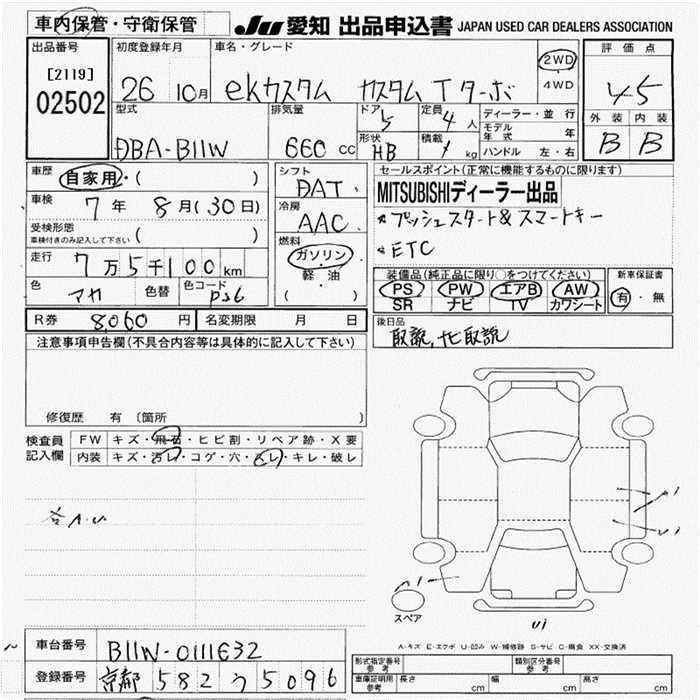 車内保管・守衛保管
JU 愛知 出品申込書 JAPAN USED CAR DEALERS ASSOCIATION
出品番号
[2119]
02502
初度登録年月
26 10月
車名・グレード
ekカスタム カスタムTターボ
2WD
4WD
評価点
4.5
外装 内装
B B
型式
DBA-B11W
排気量
660 cc
ドア
5
形状
HB
定員
4 人
積載
kg
ディーラー・並行
モデル年式 年
ハンドル 左・右
車歴
自家用・( )
車検
7年 8月(30日)
受検形態
車検付きのみ記入して下さい ( )
走行
7万5千100km
色
アカ
色替
色コード
P26
シフト
DAT
冷房
AAC
燃料
ガソリン
軽・油
( )
セールスポイント(正常に機能するものに限ります)
MITSUBISHIディーラー出品
*プッシュスタート&スマートキー
*ETC
装備品(純正品に限り○をつけてください)
PS PW エアB AW
SR ナビ TV カワシート
新車保証書
有・無
後日品
取説,ナビ取説
R券 8,060円
名変期限 月 日
注意事項申告欄(不具合内容等は具体的に記入して下さい)
修復歴 有 〔箇所 〕
検査員記入欄
FW キズ・飛石・ヒビ割・リペア跡・X要
内装 キズ・汚レ・コゲ・穴・スレ・キレ・破レ
各A.U
A1
スペア
U1
A-キズ E-エクボ U-凹み W-補修跡 S-サビ C-腐食 XX-交換済
車台番号
B11W-0111632
登録番号
京都 582 う 5096
形式指定番号
参考
類別区分番号
参考
車庫証明用
参考
長さ cm 幅 cm 高さ cm